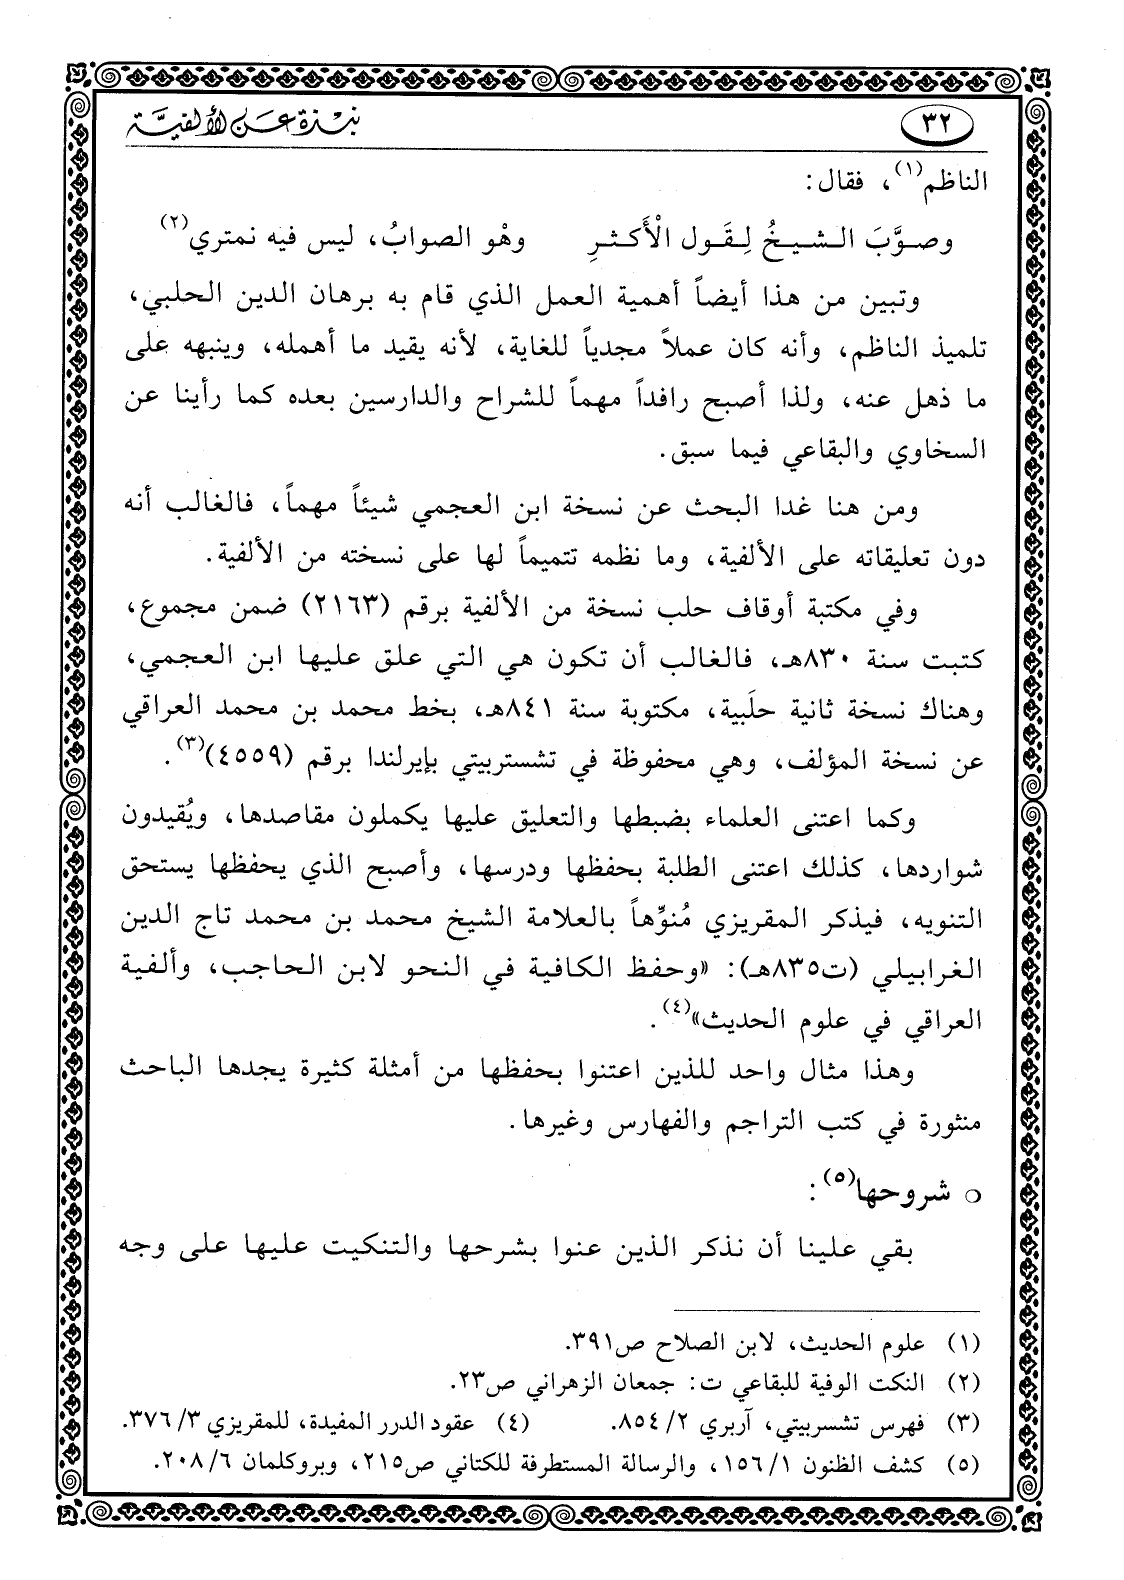 ٣٢
نبذة عن الألفية
الناظم(١)، فقال:
وصوَّبَ الشيخُ لِقَول الْأَكثرِ وهْو الصوابُ، ليس فيه نمتري(٢)
وتبين من هذا أيضاً أهمية العمل الذي قام به برهان الدين الحلبي،
تلميذ الناظم، وأنه كان عملاً مجدياً للغاية، لأنه يقيد ما أهمله، وينبهه على
ما ذهل عنه، ولذا أصبح رافداً مهماً للشراح والدارسين بعده كما رأينا عن
السخاوي والبقاعي فيما سبق.
ومن هنا غدا البحث عن نسخة ابن العجمي شيئاً مهماً، فالغالب أنه
دون تعليقاته على الألفية، وما نظمه تتميماً لها على نسخته من الألفية.
وفي مكتبة أوقاف حلب نسخة من الألفية برقم (٢١٦٣) ضمن مجموع،
كتبت سنة ٨٣٠هـ، فالغالب أن تكون هي التي علق عليها ابن العجمي،
وهناك نسخة ثانية حلَبية، مكتوبة سنة ٨٤١هـ، بخط محمد بن محمد العراقي
عن نسخة المؤلف، وهي محفوظة في تشستربيتي بإيرلندا برقم (٤٥٥٩)(٣).
وكما اعتنى العلماء بضبطها والتعليق عليها يكملون مقاصدها، ويُقيدون
شواردها، كذلك اعتنى الطلبة بحفظها ودرسها، وأصبح الذي يحفظها يستحق
التنويه، فيذكر المقريزي مُنوِّهاً بالعلامة الشيخ محمد بن محمد تاج الدين
الغرابيلي (ت٨٣٥هـ): «وحفظ الكافية في النحو لابن الحاجب، وألفية
العراقي في علوم الحديث»(٤).
وهذا مثال واحد للذين اعتنوا بحفظها من أمثلة كثيرة يجدها الباحث
منثورة في كتب التراجم والفهارس وغيرها.
○ شروحها(٥):
بقي علينا أن نذكر الذين عنوا بشرحها والتنكيت عليها على وجه
(١) علوم الحديث، لابن الصلاح ص٣٩١.
(٢) النكت الوفية للبقاعي ت: جمعان الزهراني ص٢٣.
(٣) فهرس تشسربيتي، آربري ٢/ ٨٥٤. (٤) عقود الدرر المفيدة، للمقريزي ٣/ ٣٧٦.
(٥) كشف الظنون ١/ ١٥٦، والرسالة المستطرفة للكتاني ص٢١٥، وبروكلمان ٦/ ٢٠٨.